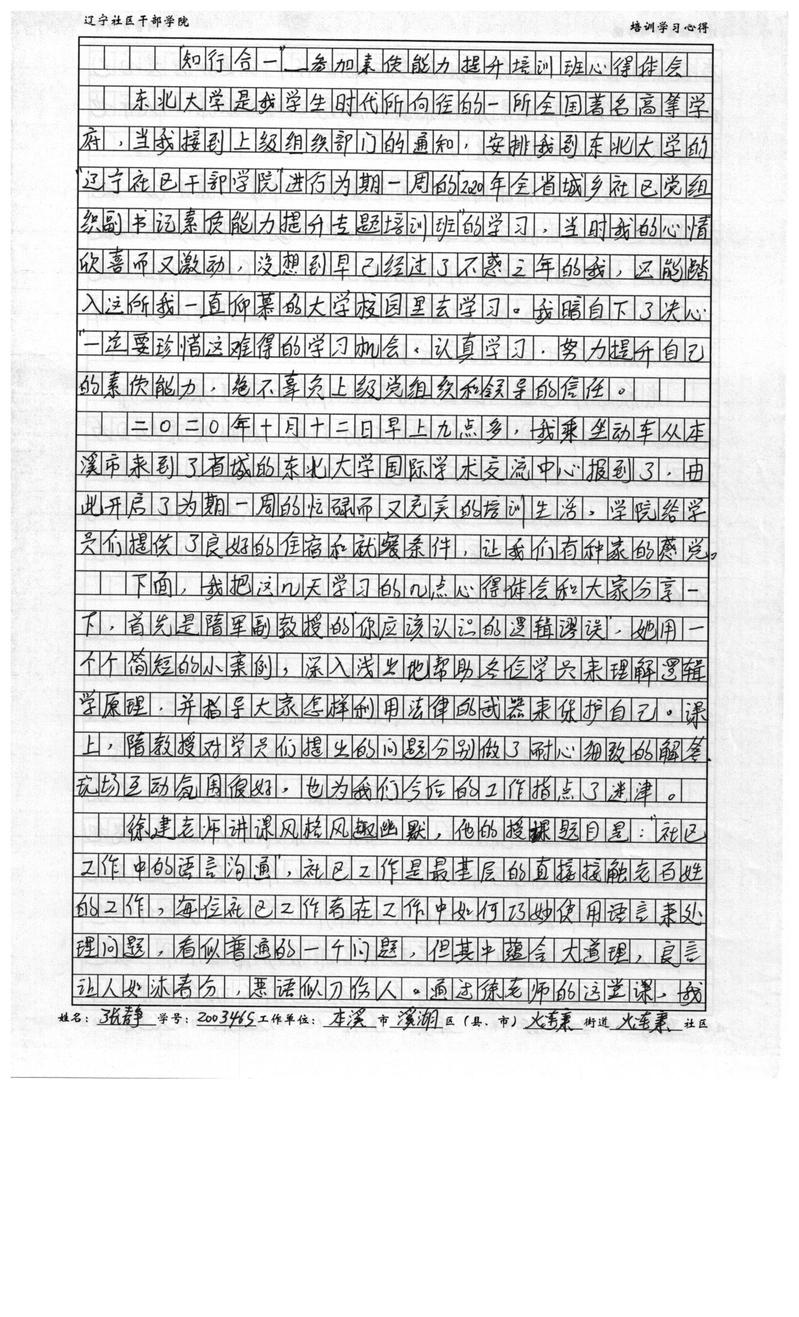 辽宁社区干部学院
培训学习心得
知行合一"__参加素质能力提升培训班心得体会
东北大学是我学生时代所向往的一所全国著名高等学
府,当我接到上级组织部门的通知,安排我到东北大学的
"辽宁社区干部学院"进行为期一周的"2020年全省城乡社区党组
织副书记素质能力提升专题培训班"的学习,当时我的心情
欣喜而又激动,没想到早已经过了不惑之年的我,还能踏
入这所我一直仰慕的大学校园里去学习。我暗自下了决心
"一定要珍惜这难得的学习机会、认真学习,努力提升自己
的素质能力,绝不辜负上级党组织和领导的信任。
二〇二〇年十月十二日早上九点多,我乘坐动车从本
溪市来到了省城的东北大学国际学术交流中心报到了,由
此开启了为期一周的忙碌而又充实的培训生活。学院给学
员们提供了良好的住宿和就餐条件,让我们有种家的感觉。
下面,我把这几天学习的几点心得体会和大家分享一
下,首先是隋军副教授的"你应该认识的逻辑谬误",她用一
个个简短的小案例,深入浅出地帮助各位学员来理解逻辑
学原理,并指导大家怎样利用法律的武器来保护自己。课
上,隋教授对学员们提出的问题分别做了耐心细致的解答,
现场互动氛围很好,也为我们今后的工作指点了迷津。
徐建老师讲课风格风趣幽默,他的授课题目是:"社区
工作中的语言沟通",社区工作是最基层的直接接触老百姓
的工作,每位社区工作者在工作中如何巧妙使用语言来处
理问题,看似普通的一个问题,但其中蕴含大道理,良言
让人如沐春分,恶语似刀伤人。通过徐老师的这堂课,我
姓名:张静 学号:2003465工作单位:本溪市溪湖区(县、市)火连寨街道火连寨社区